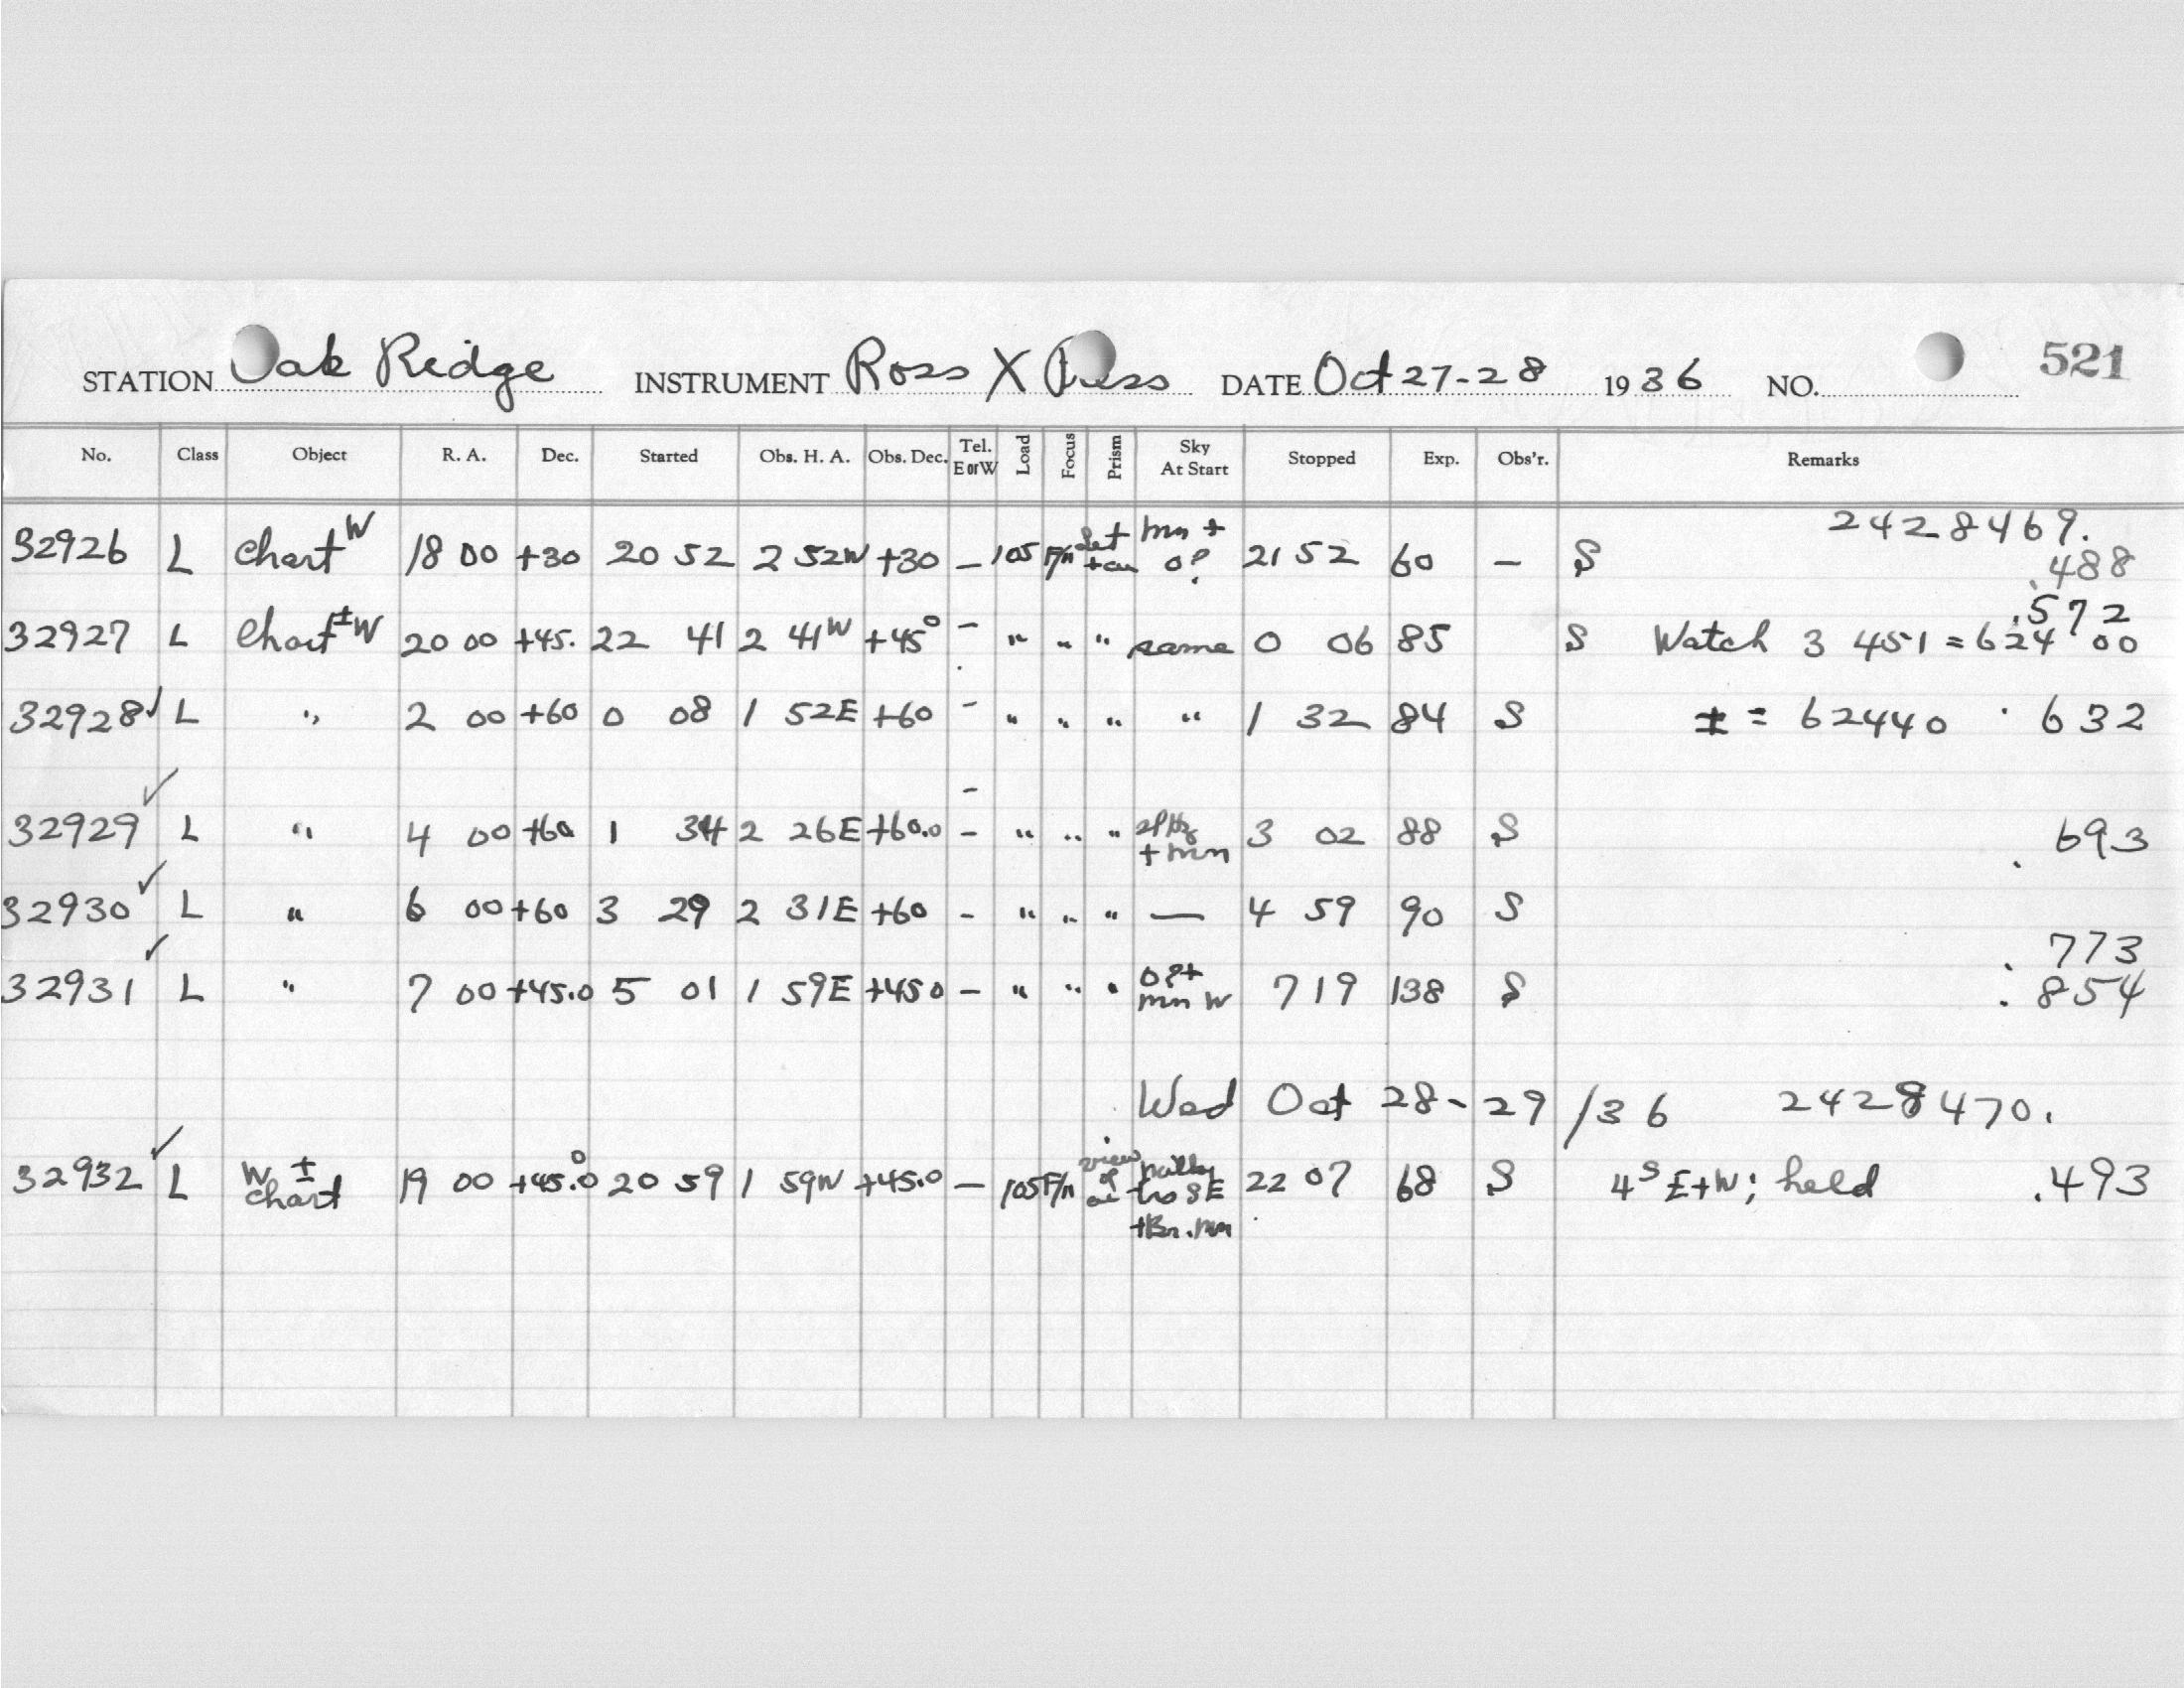 STATION Oak Ridge INSTRUMENT Ross X DATE Oct 27-28 1936 NO. 521
No. Class Object R. A. Dec. Started Obs. H. A. Obs. Dec. Tel. E or W Load Focus Prism Sky At Start Stopped Exp. Obs'r. Remarks
2428469.
32926 L Chart W 18 00 +30 20 52 2 52W +30 – 105 F/n mn + 0? 21 52 60 – S .488
.572
32927 L Chart ± W 20 00 +45. 22 41 2 41W +45° – " " " same 0 06 85 S Watch 3 451 = 624 00
32928 ✓ L " 2 00 +60 0 08 1 52E +60 – " " " " 1 32 84 S ± = 62440 .632
32929 ✓ L " 4 00 +60 1 34 2 26E +60.0 – " " " + mn 3 02 88 S .693
32930 ✓ L " 6 00 +60 3 29 2 31E +60 – " " " — 4 59 90 S
.773
32931 ✓ L " 7 00 +45.0 5 01 1 59E +450 – " " " 0?+ mn W 7 19 138 S .854
Wed Oct 28-29 /36 2428470.
32932 ✓ L W ± chart 19 00 +45.0 20 59 1 59W +45.0 – 105 F/n 22 07 68 S 4S E+W; held .493
+Br. mn